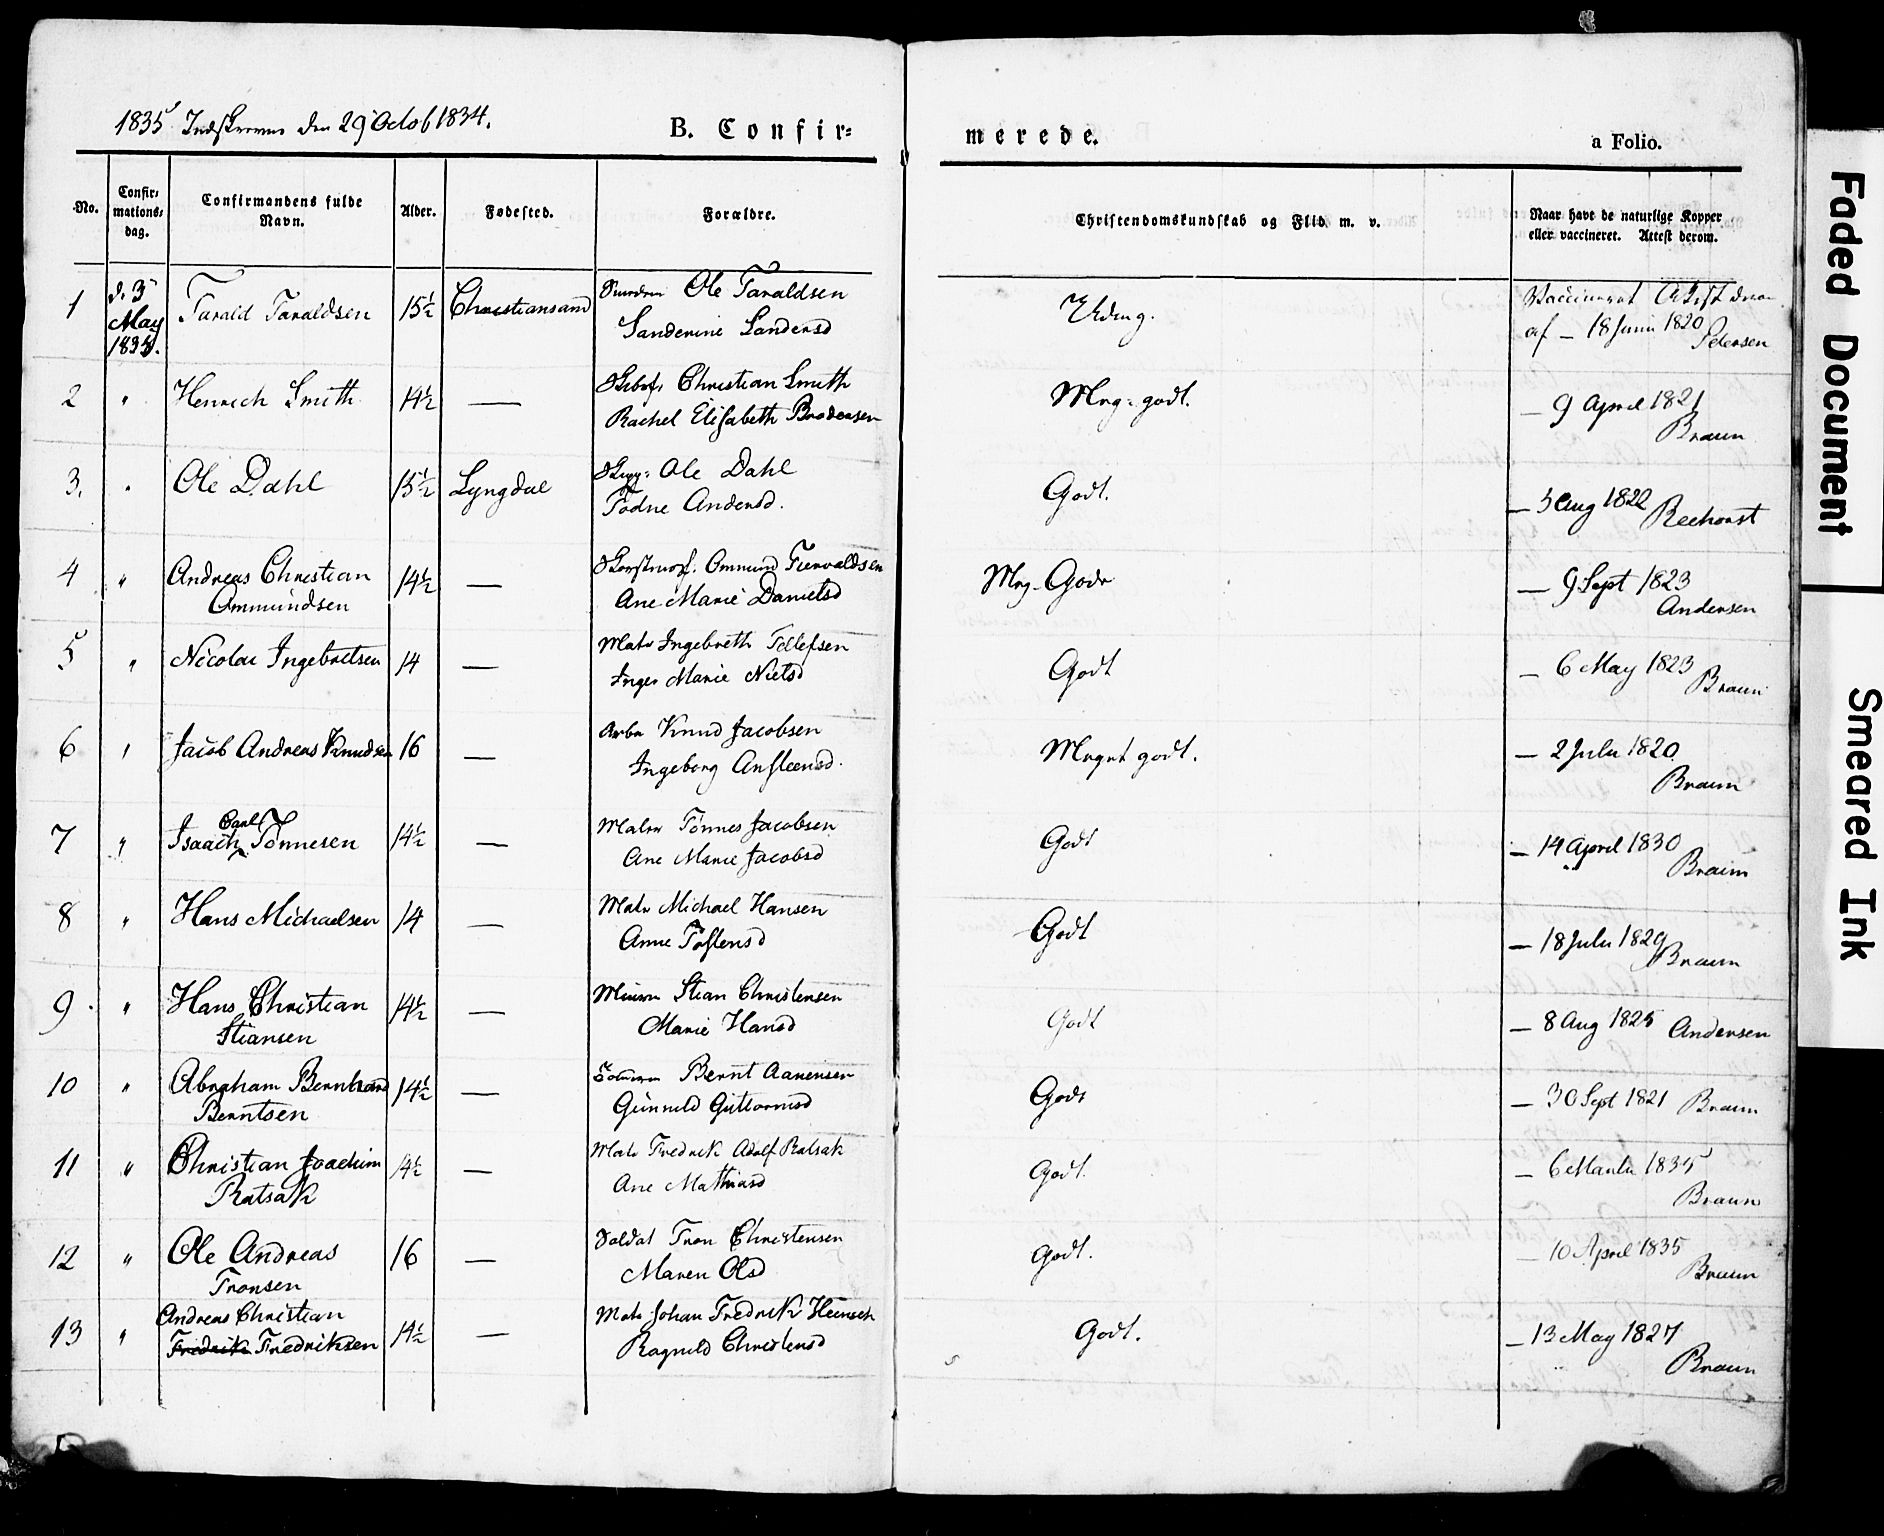 1835 Indskrevne den 29 Octob 1834.
B. Confir=
merede.
a Folio.
No.
Confir=
mations=
dag.
Confirmandens fulde
Navn.
Alder.
Fødested.
Forældre.
Christendomskundskab og Flid m. v.
Naar havt de naturlige Kopper
eller vaccineret. Attest derom.
1 d. 3 May 1835. Tarald Taraldsen 15½ Christiansand Ole Taraldsen
Sanderine Sandersd
Udmg.
Vaccineret Attest
af – 18 Juni 1820 Petersen
2 " Henrich Smith 14½ — Christian Smith
Rachel Elisabeth Brodersen
Mrg: godt.
— 9 April 1821
Braun
3. " Ole Dahl 15½ Lyngdal Ole Dahl
Todne Andersd.
Godt.
— 5 Aug 1822 Reehorst
4 " Andreas Christian
Ommundsen
14½ — Ommund Tiervaldsen
Ane Marie Danielsd
Mrg. Godt
— 9 Sept 1823
Andersen
5 " Nicolai Ingebretsen 14 — Matr Ingebreth Tellefsen
Inger Marie Nielsd
Godt
— 6 May 1823
Braun
6 " Jacob Andreas Knudsen 16 — Arbr Knud Jacobsen
Ingeborg Ansteensd.
Meget godt.
— 2 Juli 1820.
Braun
7 " Isaach Carl Tønnesen 14½ — Matr Tønnes Jacobsen
Ane Marie Jacobsd
Godt
— 14 April 1830
Braun
8 " Hans Michaelsen 14 — Matr Michael Hansen
Anne Toftensd
Godt
— 18 Juli 1829
Braun
9. " Hans Christian
Stiansen
14½ — Stian Christensen
Marie Hansd
Godt
— 8 Aug 1825 Andersen
10 " Abraham Bernhard
Berntsen
14½ — Bernt Aanensen
Gunnild Guttormsd
Godt
— 30 Sept 1821 Braun
11 " Christian Joachim
Ratsak
14½ — Matr Fredrik Adolf Ratsak
Ane Mathiasd
Godt.
— 6 Marts 1835
Braun
12 " Ole Andreas
Tronsen
16 — Soldat Tron Christensen
Maren Olsd
Godt.
— 10 April 1835
Braun
13 " Andreas Christian
Fredrik Fredriksen
14½ — Matr Johan Fredrik Heinsch
Ragnild Christensd
Godt.
— 13 May 1827
Braun
Faded Document
Smeared Ink